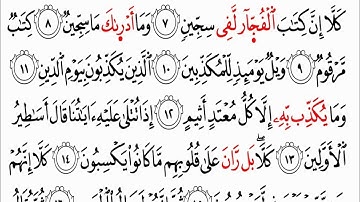 كَلَّآ إِنَّ كِتَٰبَ ٱلْفُجَّارِ لَفِى سِجِّينٍ ٧ وَمَآ أَدْرَىٰكَ مَا سِجِّينٌ ٨ كِتَٰبٌ
مَّرْقُومٌ ٩ وَيْلٌ يَوْمَئِذٍ لِّلْمُكَذِّبِينَ ١٠ ٱلَّذِينَ يُكَذِّبُونَ بِيَوْمِ ٱلدِّينِ ١١
وَمَا يُكَذِّبُ بِهِۦٓ إِلَّا كُلُّ مُعْتَدٍ أَثِيمٍ ١٢ إِذَا تُتْلَىٰ عَلَيْهِ ءَايَٰتُنَا قَالَ أَسَٰطِيرُ
ٱلْأَوَّلِينَ ١٣ كَلَّا بَلْ رَانَ عَلَىٰ قُلُوبِهِم مَّا كَانُوا۟ يَكْسِبُونَ ١٤ كَلَّآ إِنَّهُمْ